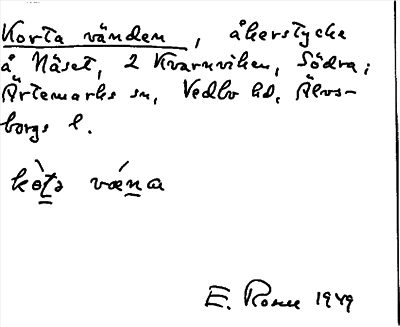 Korta vänden, åkerstycke
å Näset, 2 Kvarnviken, Södra;
Ärtemarks sn, Vedbo hd, Älvs-
borgs l.
kò̀ta vǽna
E. Rosen 1949